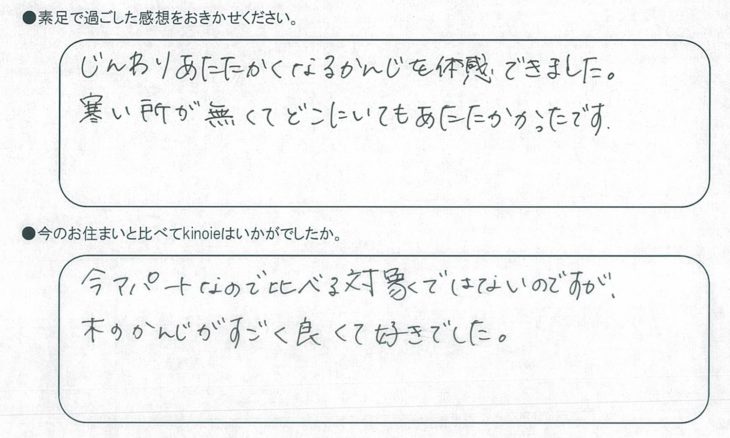 ●素足で過ごした感想をおきかせください。
じんわりあたたかくなるかんじを体感できました。
寒い所が無くてどこにいてもあたたかかったです.
●今のお住まいと比べてkinoieはいかがでしたか。
今アパートなので比べる対象ではないのですが、
木のかんじがすごく良くて好きでした。